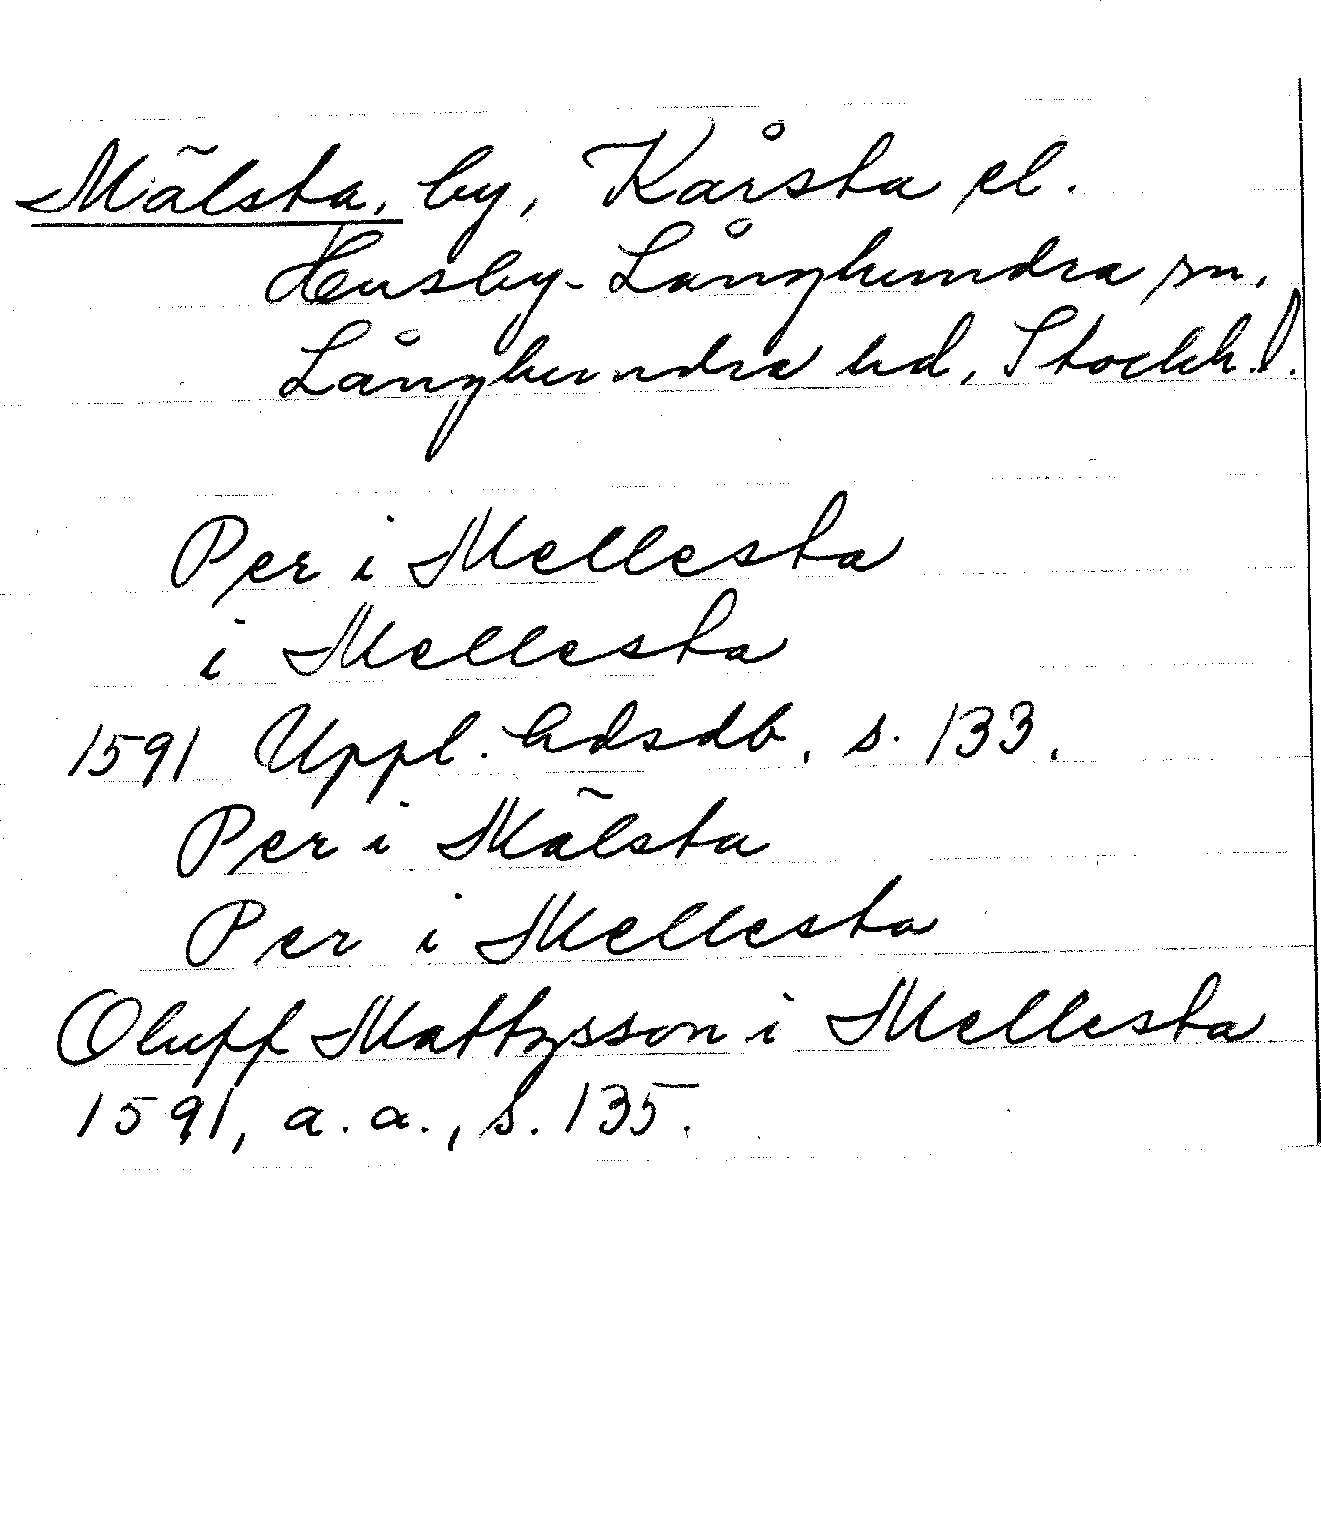 Mälsta, by, Kårsta el.
Husby-Långhundra sn.
Långhundra hd, Stockh. l.
Per i Mellesta
i Mellesta
1591 Uppl. hdsdb. s. 133.
Per i Mälsta
Per i Mellesta
Oluff Mattzsson i Mellesta
1591, a. a., s. 135.